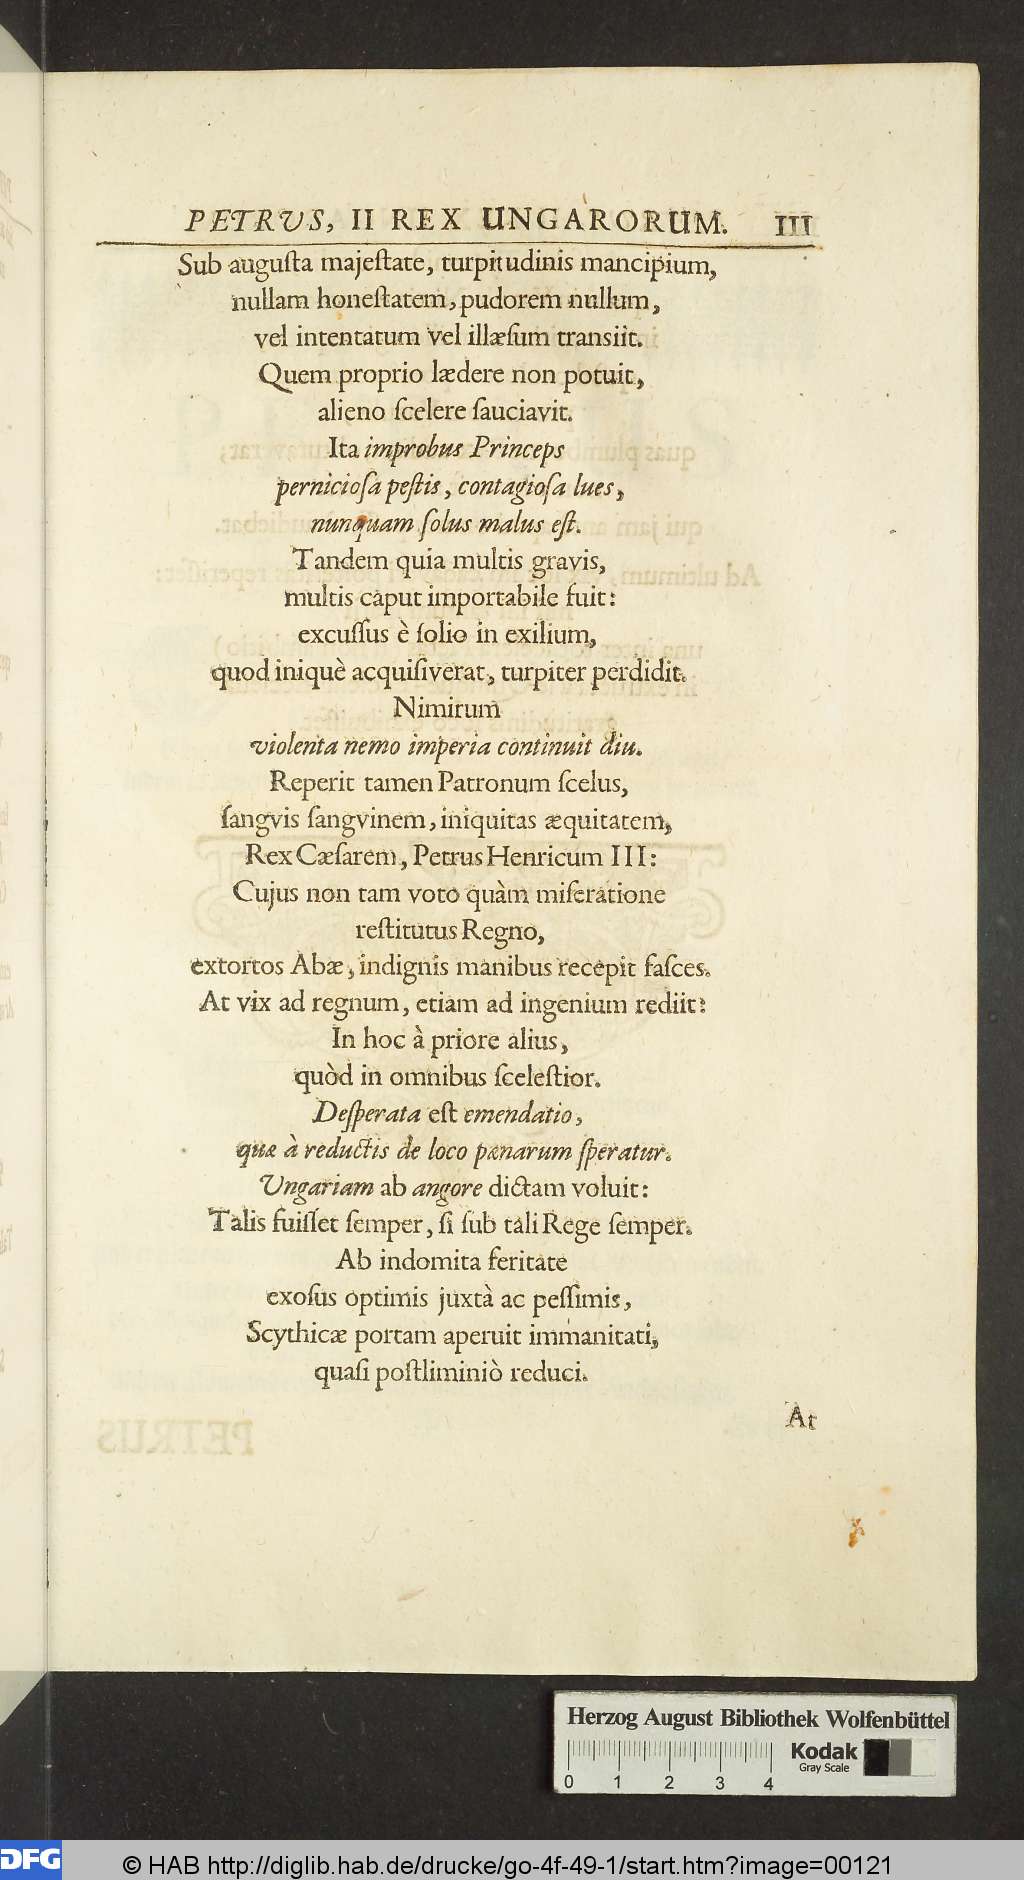 PETRVS, II REX UNGARORUM. III
Sub auguſta majeſtate, turpitudinis mancipium,
nullam honeſtatem, pudorem nullum,
vel intentatum vel illæſum transiit.
Quem proprio lædere non potuit,
alieno ſcelere ſauciavit.
Ita improbus Princeps
pernicioſa peſtis, contagioſa lues,
nunquam ſolus malus eſt.
Tandem quia multis gravis,
multis caput importabile fuit:
excuſſus è ſolio in exilium,
quod iniquè acquiſiverat, turpiter perdidit.
Nimirum
violenta nemo imperia continuit diu.
Reperit tamen Patronum ſcelus,
ſangvis ſangvinem, iniquitas æquitatem,
Rex Cæſarem, Petrus Henricum III:
Cujus non tam voto quàm miſeratione
reſtitutus Regno,
extortos Abæ, indignis manibus recepit faſces.
At vix ad regnum, etiam ad ingenium rediit:
In hoc à priore alius,
quòd in omnibus ſceleſtior.
Deſperata eſt emendatio,
quæ à reductis de loco pænarum ſperatur.
Ungariam ab angore dictam voluit:
Talis fuiſſet ſemper, ſi ſub tali Rege ſemper.
Ab indomita feritate
exoſus optimis juxtà ac peſſimis,
Scythicæ portam aperuit immanitati,
quaſi poſtliminiò reduci.
At
PETRUS
Herzog August Bibliothek Wolfenbüttel
0 1 2 3 4
Kodak
Gray Scale
DFG
© HAB http://diglib.hab.de/drucke/go-4f-49-1/start.htm?image=00121